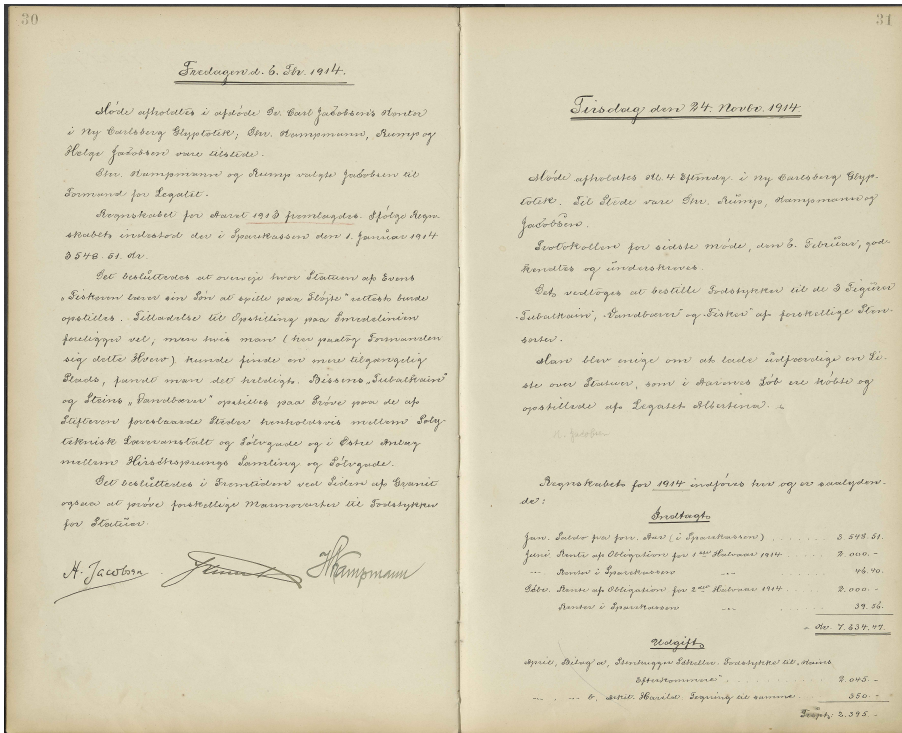 30
Fredagen d. 6. Fbr. 1914.
Møde afholdtes i afdøde Dr. Carl Jacobsens Kontor
i Ny Carlsberg Glyptotek; Dhr. Kampmann, Rump og
Helge Jacobsen vare tilstede.
Dhr. Kampmann og Rump valgte Jacobsen til
Formand for Legatet.
Regnskabet for Aaret 1913 fremlagdes. Ifølge Regn-
skabets indestod der i Sparekassen den 1. Januar 1914
3548.51. Kr.
Det besluttedes at overveje hvor Statuen af Evens
„Fiskeren lærer sin Søn at spille paa Fløjte" rettest burde
opstilles. Tilladelse til Opstilling paa Smedelinien
foreligger vel, men hvis man (her paatog Formanden
sig dette Hverv) kunde finde en mere tilgængelig
Plads, fandt man det heldigt. Bissens „Tubalkain"
og Steins „Vandbærer" opstilles paa Prøve paa de af
Stifteren foreslaaede Steder henholdsvis mellem Poly-
teknisk Læreranstalt og Sølvgade og i Østre Anlæg
mellem Hirschsprungs Samling og Sølvgade.
Det besluttedes i Fremtiden ved Siden af Granit
ogsaa at prøve forskellige Marmorarter til Fodstykker
for Statuer.
H. Jacobsen
HKampmann
31
Tirsdag den 24. Novbr. 1914.
Møde afholdtes Kl. 4 Eftmdg. i Ny Carlsberg Glyp-
totek. Til Stede vare Dhr. Rump, Kampmann og
Jacobsen.
Protokollen for sidste Møde, den 6. Februar, god-
kendtes og underskreves.
Det vedtoges at bestille Fodstykker til de 3 Figurer
„Tubalkain", „Vandbærer" og „Fisker" af forskellige Sten-
sorter.
Man blev enige om at lade udfærdige en Li-
ste over Statuer, som i Aarenes Løb ere købte og
opstillede af Legatet Albertina.
H. Jacobsen
Regnskabet for 1914 indføres her og er saalyden-
de:
Indtægt
Jan. Saldo fra forr. Aar (i Sparekassen) 3.548.51.
Juni Rente af Obligation for 1ste Halvaar 1914 2.000.-
-"- Renter i Sparekassen -"- 46.40.
Rente af Obligation for 2det Halvaar 1914 2.000.-
Renter i Sparekassen -"- 39.56.
Kr. 7.634.47.
Udgift
April, Bilag a, Stenhugger Fodstykke til „Kains
Efterkommere" 2.045.-
-"- -"- b, Arkit. Harild Tegning til samme 350.-
2.395.-